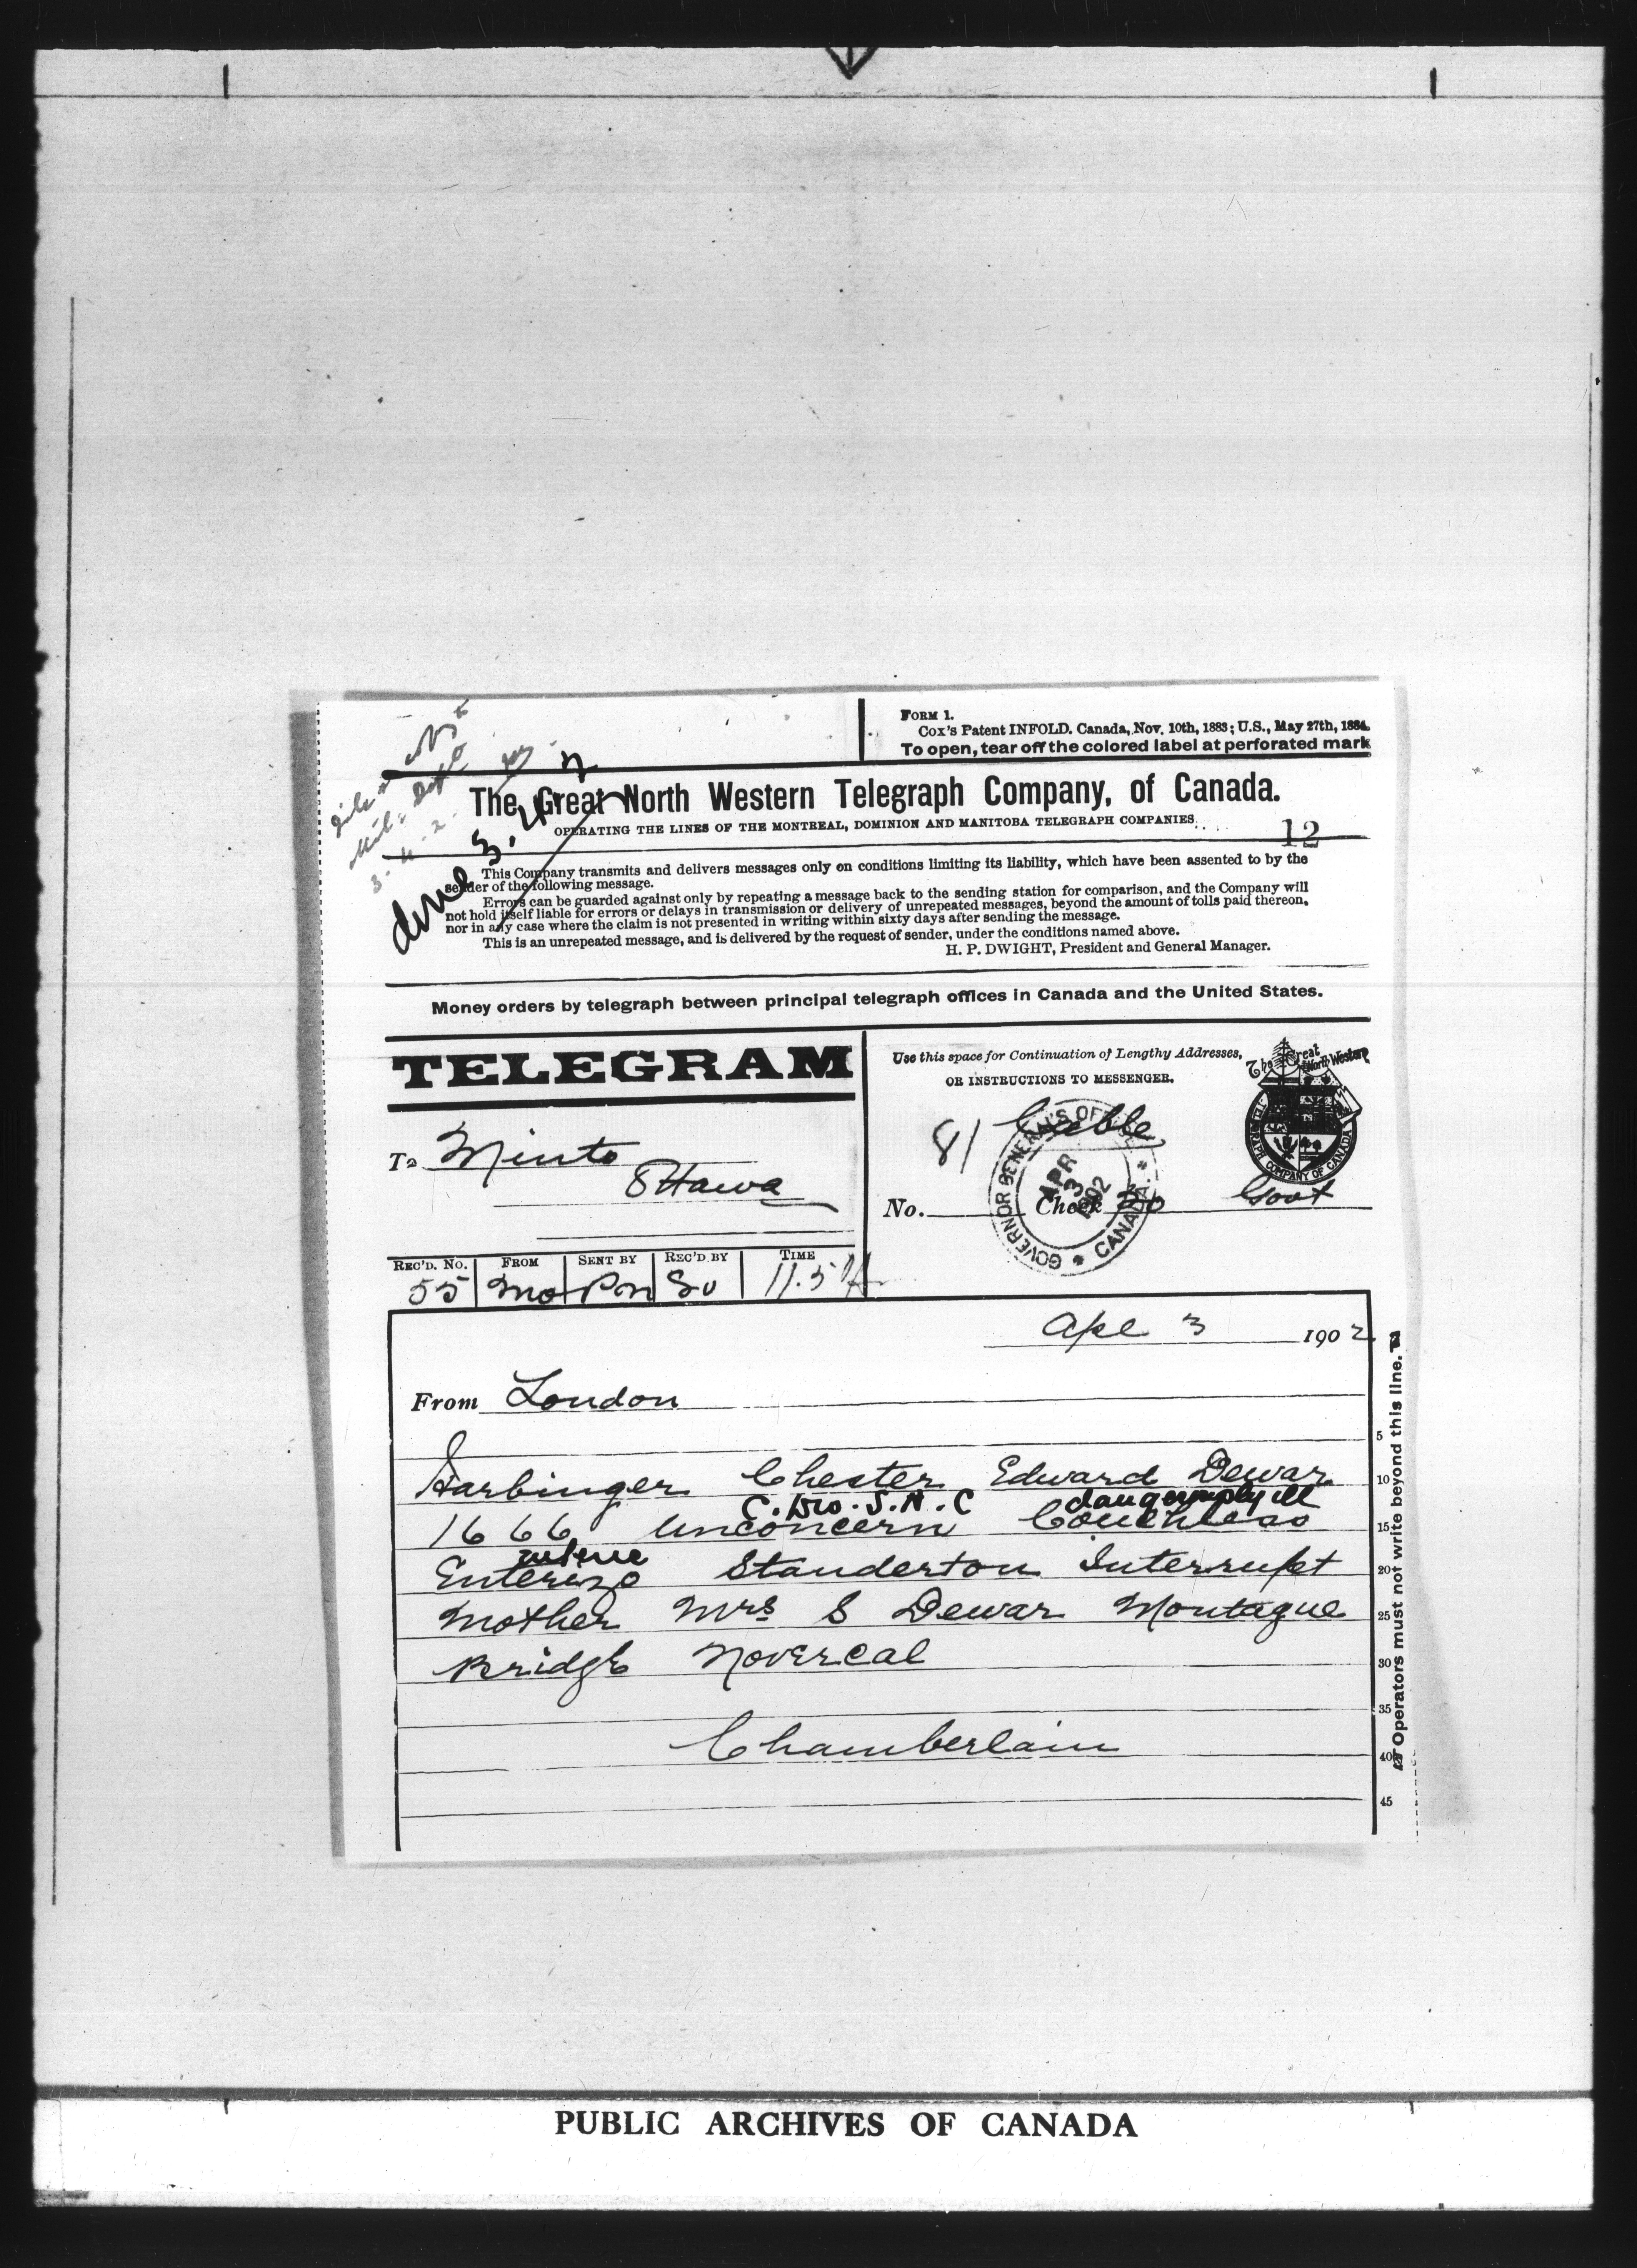 FORM 1.
Cox's Patent INFOLD. Canada, Nov. 10th, 1883; U.S., May 27th, 1884.
To open, tear off the colored label at perforated mark
The Great North Western Telegraph Company, of Canada.
OPERATING THE LINES OF THE MONTREAL, DOMINION AND MANITOBA TELEGRAPH COMPANIES.
12
This Company transmits and delivers messages only on conditions limiting its liability, which have been assented to by the
sender of the following message.
Errors can be guarded against only by repeating a message back to the sending station for comparison, and the Company will
not hold itself liable for errors or delays in transmission or delivery of unrepeated messages, beyond the amount of tolls paid thereon,
nor in any case where the claim is not presented in writing within sixty days after sending the message.
This is an unrepeated message, and is delivered by the request of sender, under the conditions named above.
H. P. DWIGHT, President and General Manager.
Money orders by telegraph between principal telegraph offices in Canada and the United States.
TELEGRAM
Use this space for Continuation of Lengthy Addresses,
OR INSTRUCTIONS TO MESSENGER.
The Great North Western
TELEGRAPH COMPANY OF CANADA
81 Cable
GOVERNOR GENERAL'S OFFICE
APR 3 1902
CANADA
To Minto
Ottawa
No. Check 20 Govt
REC'D. NO. FROM SENT BY REC'D BY TIME
55 Mo Pm So 11.5
Apl 3 1902
From London
Harbinger Chester Edward Dewar
C. Divo. S.A.C dangerously ill
1666 Unconcern Couchless
enteric
Enterizo Standerton Interrupt
Mother Mrs S Dewar Montague
Bridge Novercal
Chamberlain
5
10
15
20
25
30
35
40
45
Operators must not write beyond this line.
PUBLIC ARCHIVES OF CANADA